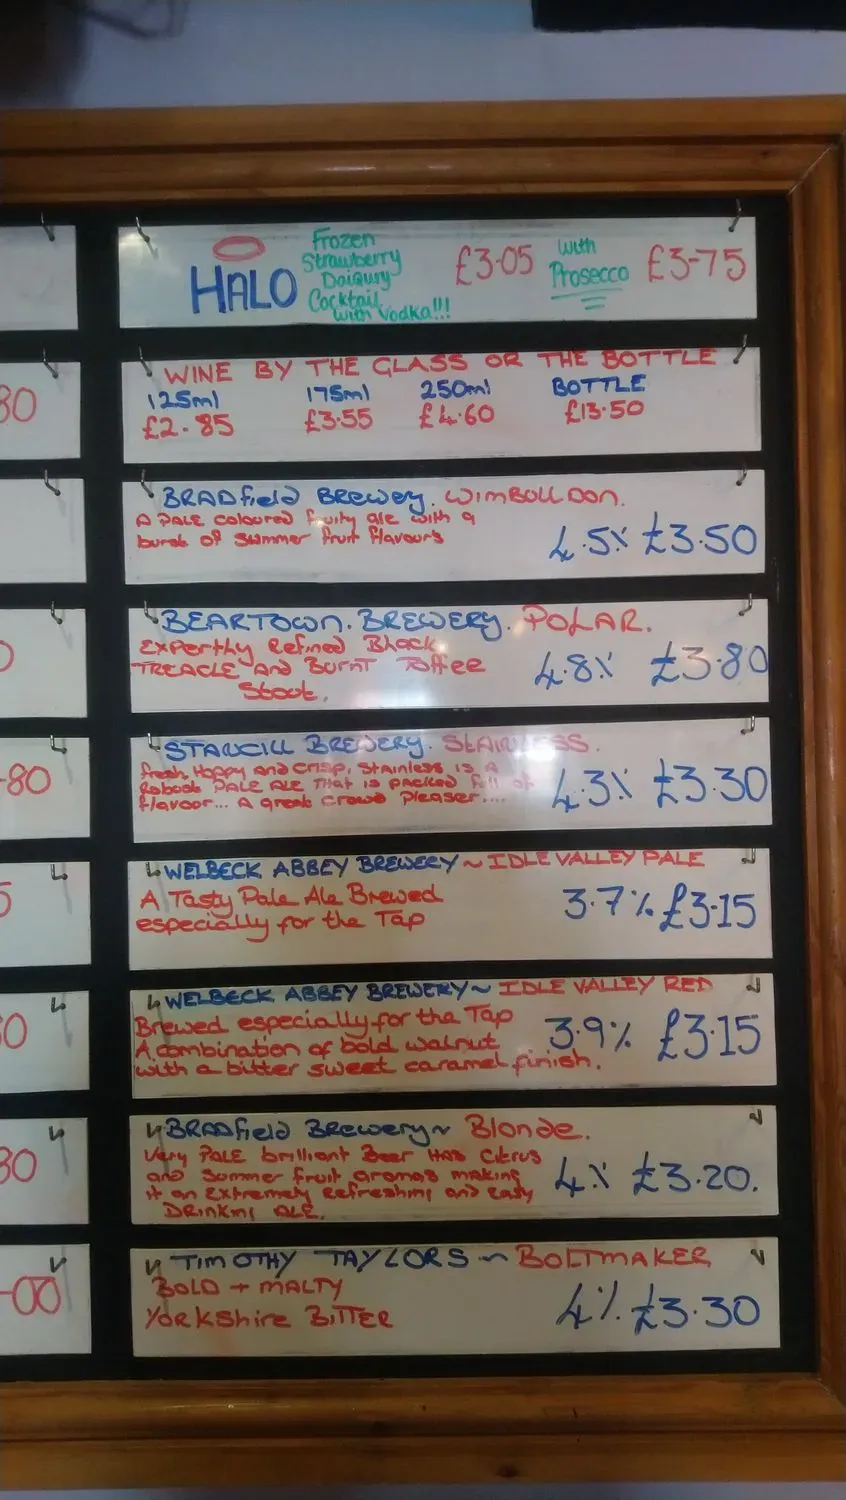 HALO
Frozen
Strawberry
Daiqury
Cocktail
with Vodka!!!
£3.05
with
Prosecco
£3-75
WINE BY THE GLASS OR THE BOTTLE
125ml 175ml 250ml BOTTLE
£2.85 £3.55 £4.60 £13.50
80
BRADfield BREWERY. WIMBULLDON.
A PALE coloured fruity ale with a
burst of summer fruit flavours
4.5% £3.50
BEARTOWN. BREWERY. POLAR.
Experthy Refined Black
TREACLE AND BURNT Toffee
Stout.
4.8% £3.80
0
STANCILL BREWERY. STAINLESS.
fresh, Hoppy and crisp, Stainless is A
Robust PALE ALE THAT is packed full of
flavour... A great crowd Pleaser....
4.3% £3.30
-80
WELBECK ABBEY BREWERY ~ IDLE VALLEY PALE
A Tasty Pale Ale Brewed
especially for the Tap
3.7% £3.15
5
WELBECK ABBEY BREWERY ~ IDLE VALLEY RED
Brewed especially for the Tap
A combination of bold walnut
with a bitter sweet caramel finish.
3.9% £3.15
0
BRADfield BREWERY ~ Blonde.
Very PALE brilliant Beer HAS Citrus
and Summer fruit aromas making
it an Extremely Refreshing and Easy
DRINKING ALE.
4% £3.20.
80
TIMOTHY TAYLORS ~ BOLTMAKER
BOLD + MALTY
YORKSHIRE BITTER
4%. £3.30
-00